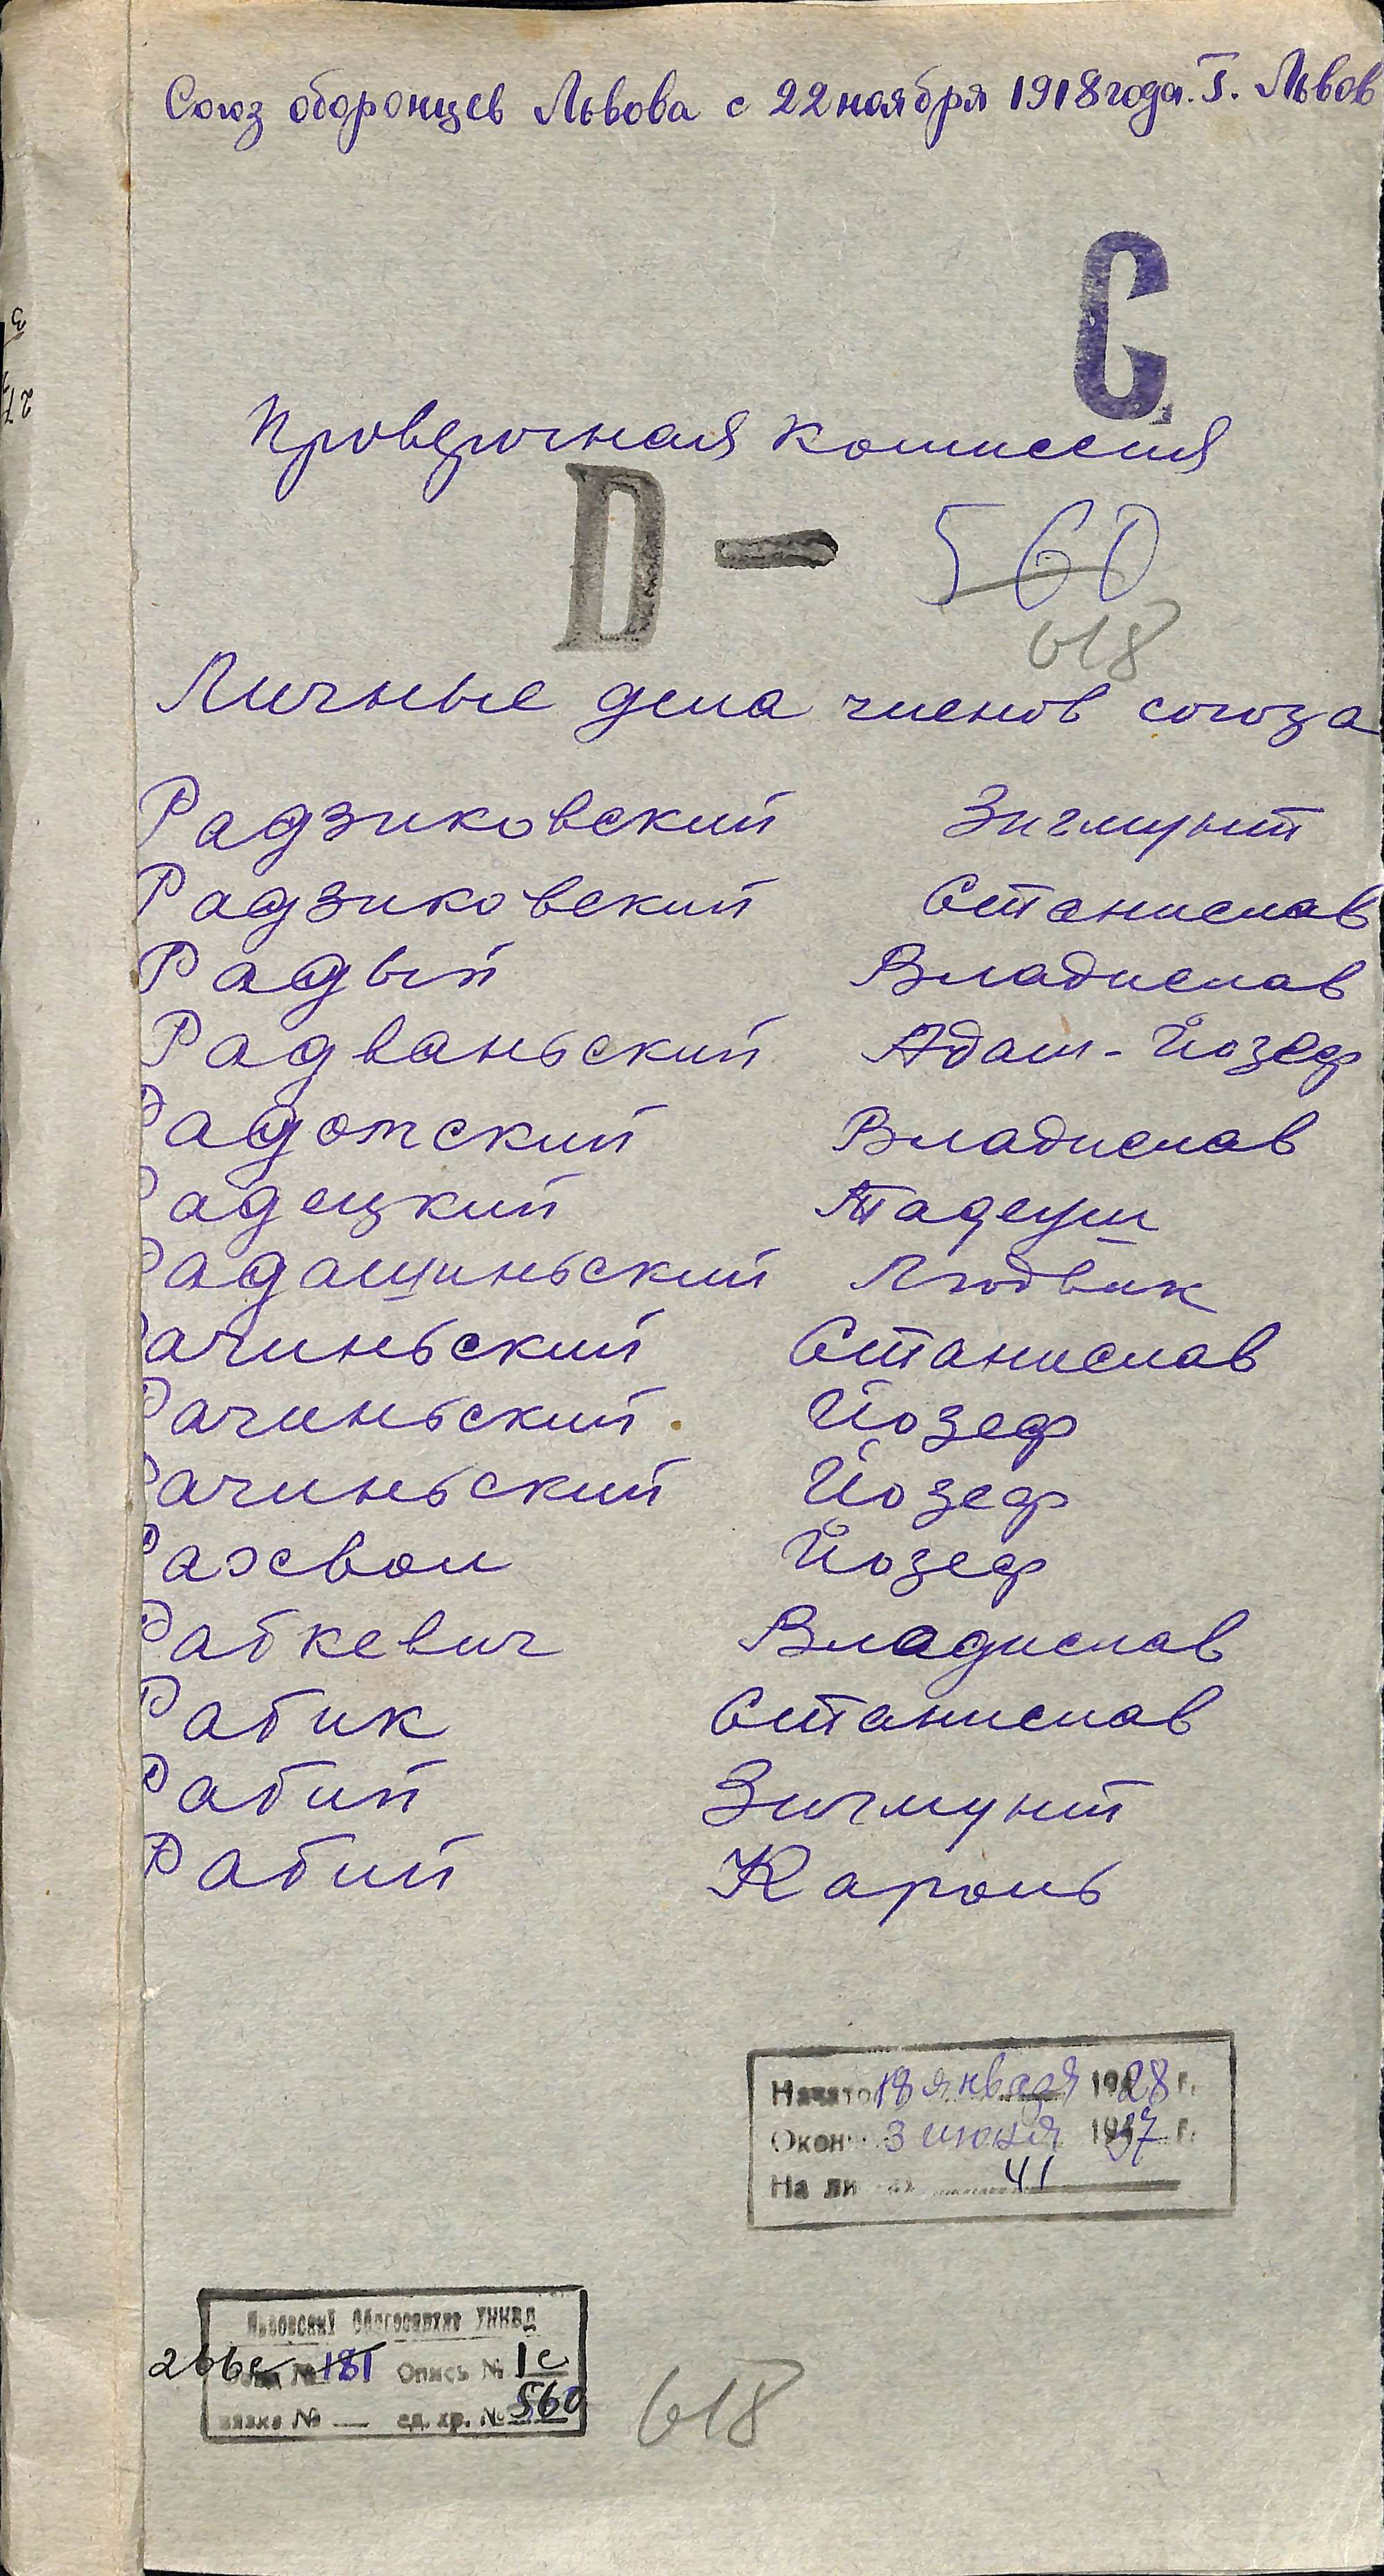 Союз оборонцев Львова с 22 ноября 1918 года. Г. Львов
С
Проверочная комиссия
D — 560
618
Личные дела членов союза
Радзиковский Зигмунт
Радзиковский Станислав
Радый Владислав
Радваньский Адам-Йозеф
Радомский Владислав
Радецкий Тадеуш
Радашиньский Людвик
Рачиньский Станислав
Рачиньский Йозеф
Рачиньский Йозеф
Рахвол Йозеф
Рабкевич Владислав
Рабик Станислав
Рабий Зигмунт
Рабий Кароль
Начато 18 января 1928 г.
Окон 3 июня 1937 г.
На ли 41
Львовский Облгосархив УНКВД
266с № 181 Опись № 1с
вязка № — ед. хр. № 560
618